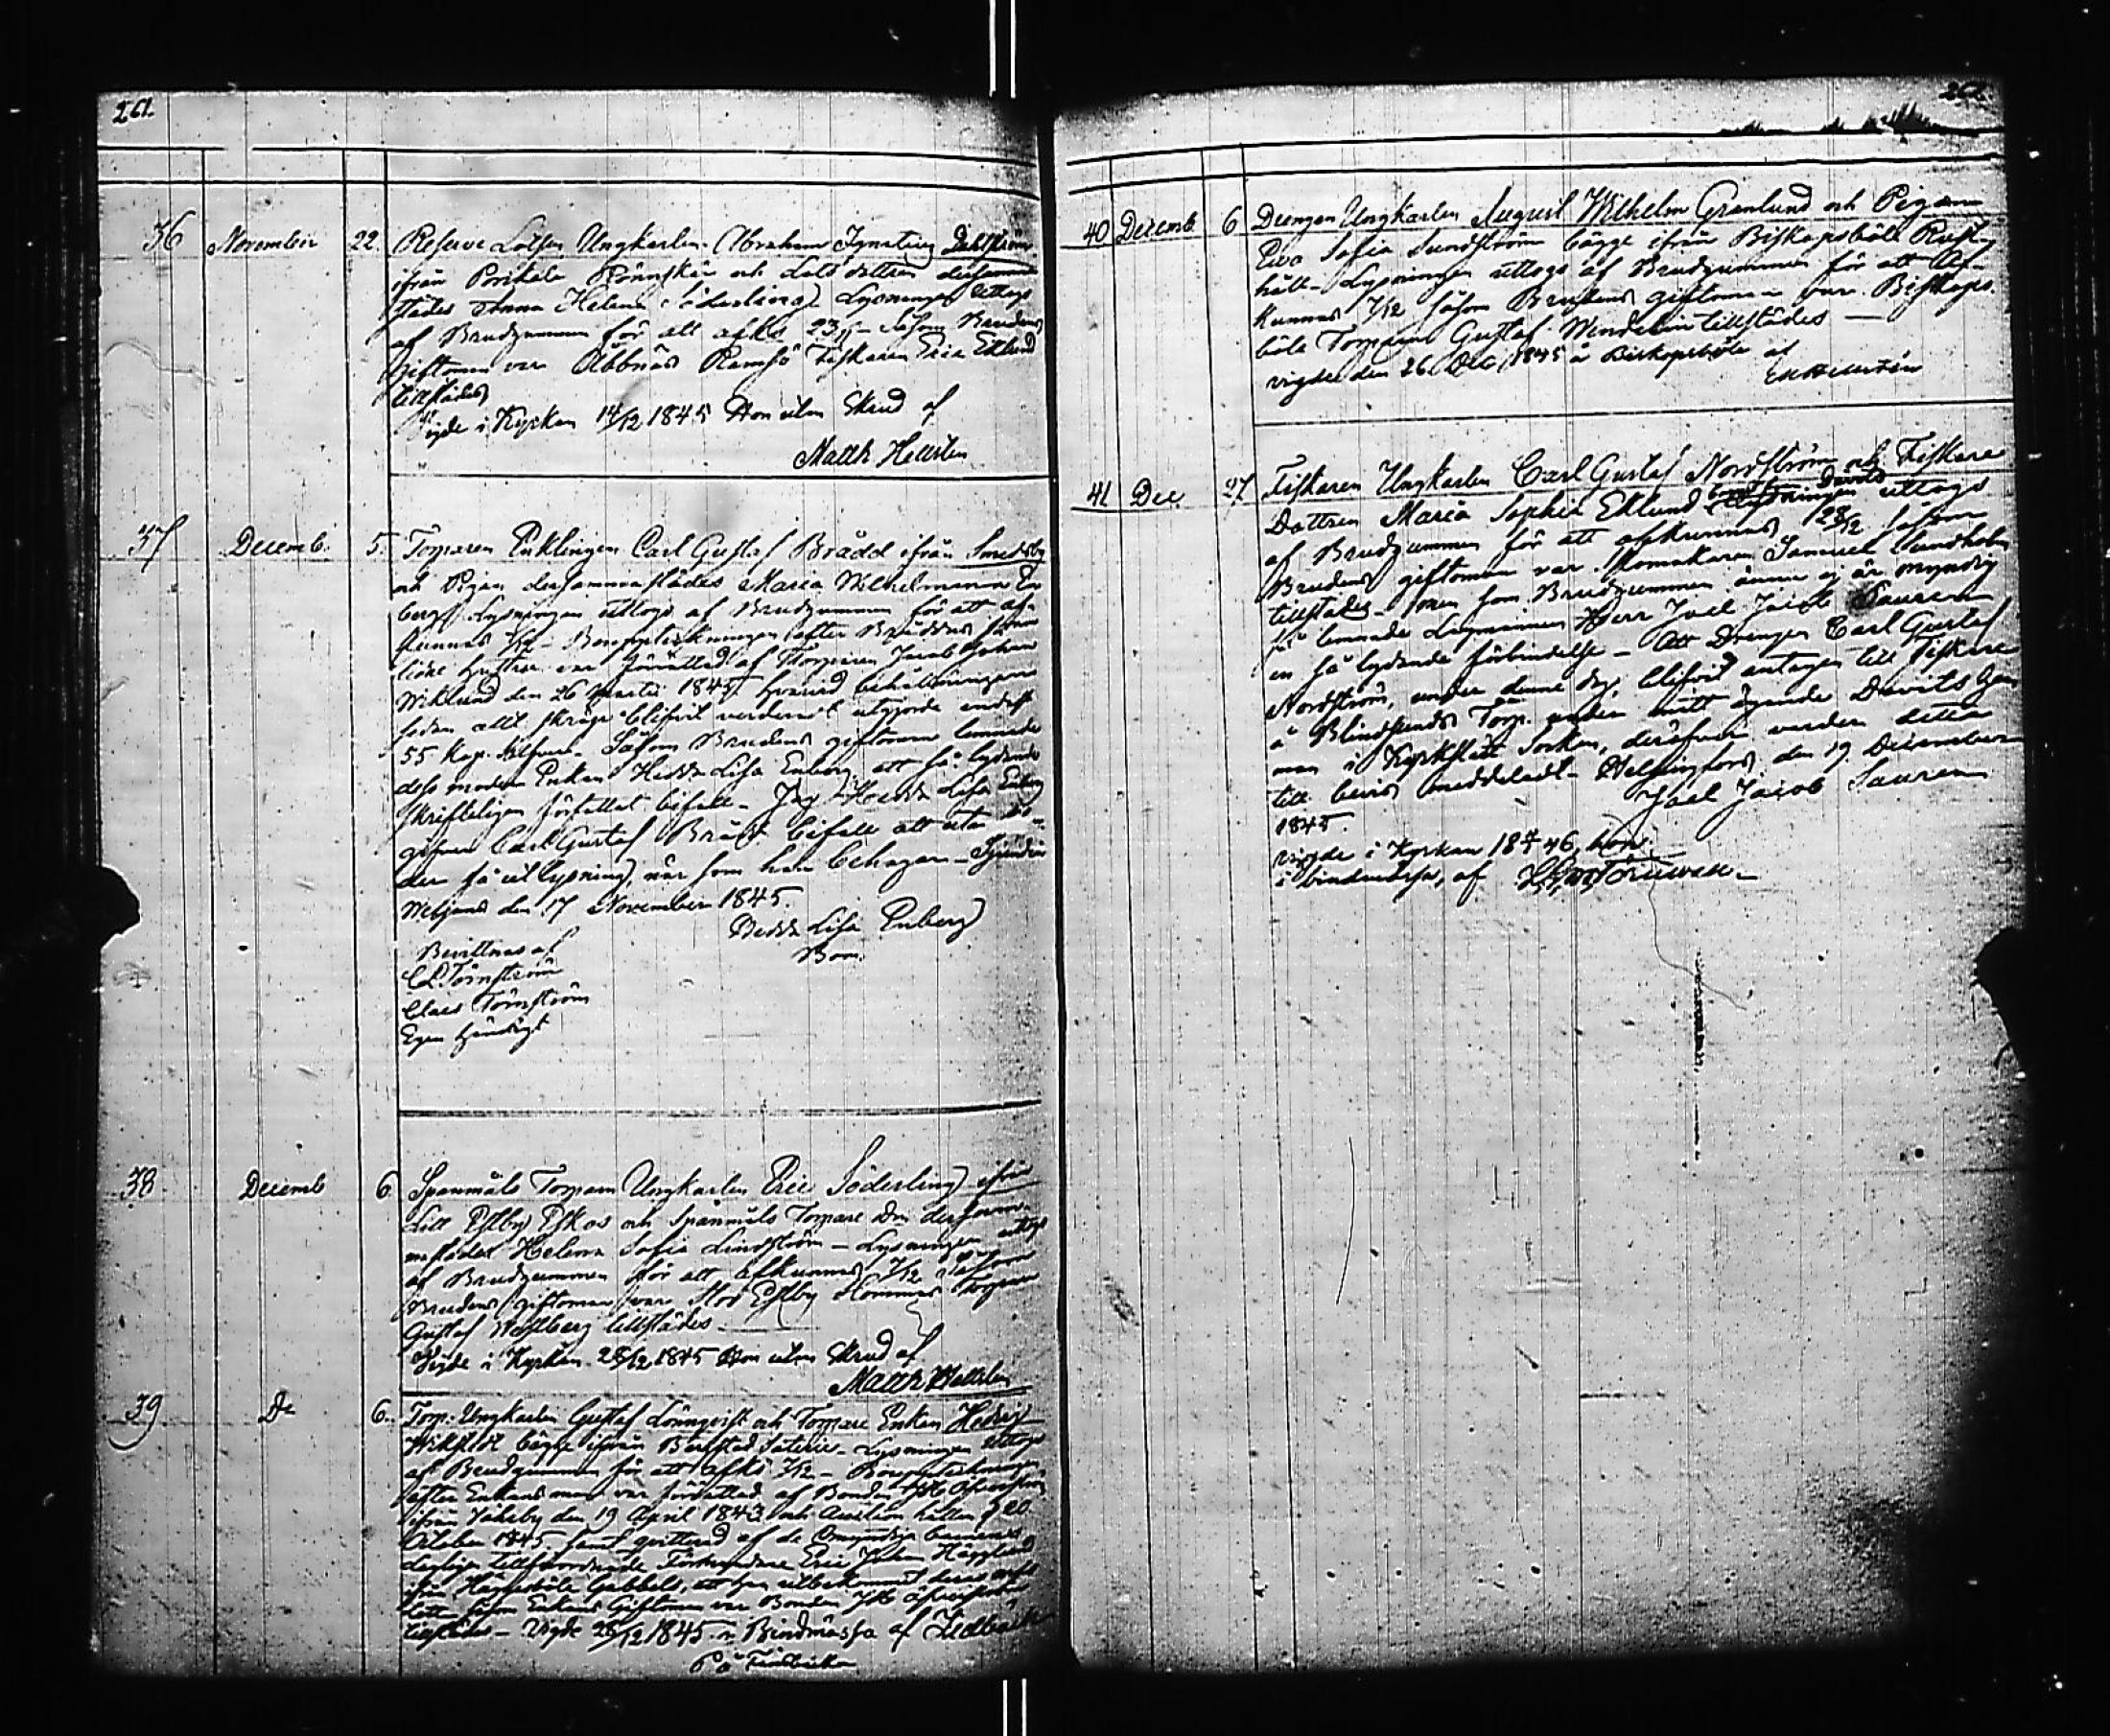 261.
36 November 22. Reserve Lotsen Ungkarlen Abraham Ignatius Dahlström
ifrån Porkala Rönnskär och Lots dottren dersamma
städes Anna Helena Söderberg Lysningen uttogs
af Brudgummen för att afks 23/11 Såsom Brudens
Giftoman var Obbnäs Ramsö Fiskaren Eric Eklund
tillstädes
Vigde i Kyrkan 14/12 1845 Hon utan Skrud af
Matth Hellsten
37 Decemb. 5. Torparen Enklingen Carl Gustaf Brådd ifrån Smedsby
och Pigan dersammastädes Maria Wilhelmina En
berg Lysningen uttogs af Brudgummen för att af-
kunnas 7/12 - Bouppteckningen efter Bråddens
hustru var förrättad af Torparen Jacob Johan
Wiklund den 26 Martii 1845. hvarvid behållningen
sedan allt blifvit värderat utgjorde endast
55 kop. Silfver. Såsom Brudens giftoman lemnade
dess moder Enkan Hedda Lisa Enberg ett så lydande
skrifteligen författat bifall - Jag Hedda Lisa Enberg
gifver Carl Gustaf Brådd bifall att uta
der få ut lysning, när som han behagar -
den 17 November 1845.
Hedda Lisa Enberg
Bom.
Bevittnas af
C L Törnström
Claes Törnström
Egen händigt
38 Decemb 6 Spanmåls Torparen Ungkarlen Eric Söderling ifrån
Lill Estby Eskos och Spanmåls Torpare Dn dersam-
mastädes Helena Sofia Lindström - Lysningen uttogs
af Brudgummen för att afkunnas 7/12 Såsom
Brudens giftoman var Stor Estby Hommas Torparen
Gustaf Wahlberg tillstädes
Vigde i Kyrkan 28/12 1845 Hon utan Skrud af
Matth Hellsten
39 Do 6. Torp. Ungkarlen Gustaf Lönnqvist och Torpare Enkan Hedvig
bägge ifrån Båtstad Säterie - Lysningen uttogs
af Brudgummen för att afks 7/12 - Bouppteckningen
efter Enkans man var författad af Bonden
ifrån den 19 April 1843 och Auction hållen d 20
October 1845. samt qvitterad af de Omyndiga barnens
tillförordnade Förmyndare Eric Johan Hägglund
ifrån Häggesböle Gabbels, att han utbekommit deras arfs
lott Såsom Enkans Giftoman var Bonden
tillstädes - Vigde 28/12 1845 i Bindmössa af
På Finska
262
40 Decemb 6 Drengen Ungkarlen August Wilhelm Granlund och Pigan
Eva Sofia Sundström bägge ifrån Biskopsböle Rust-
håll - Lysningen uttogs af Brudgummen för att Af-
kunnas 7/12 såsom Brudens giftoman var Biskops
böle Torparen Gustaf Wendelin tillstädes -
vigde den 26 Dec 1845 å Biskopsböle af
41 Dec. 27 Fiskaren Ungkarlen Carl Gustaf Nordström och Fiskare
Dottren Maria Sophia Eklund Lysningen uttogs
af Brudgummen för att afkunnas 28/12 såsom
Brudens giftoman var Skomakaren Samuel Sundholm
tillstädes - men som Brudgummen ännu ej är myndig
så lemnade Lagmannen Herr Joel Jacob Sauren
en så lydande förbindelse - Att Drengen Carl Gustaf
Nordström, under denne dag, blifvit antagen till Fiskare
å Blindsunds Torp. under mitt ägande Davits hem
man i Kyrkslätt Socken, derofvan varder detta
till bevis meddeladt - Helsingfors den 19 December
1845.
Joel Jacob Sauren
vigde i Kyrkan 18 46, hon
i bindmössa, af